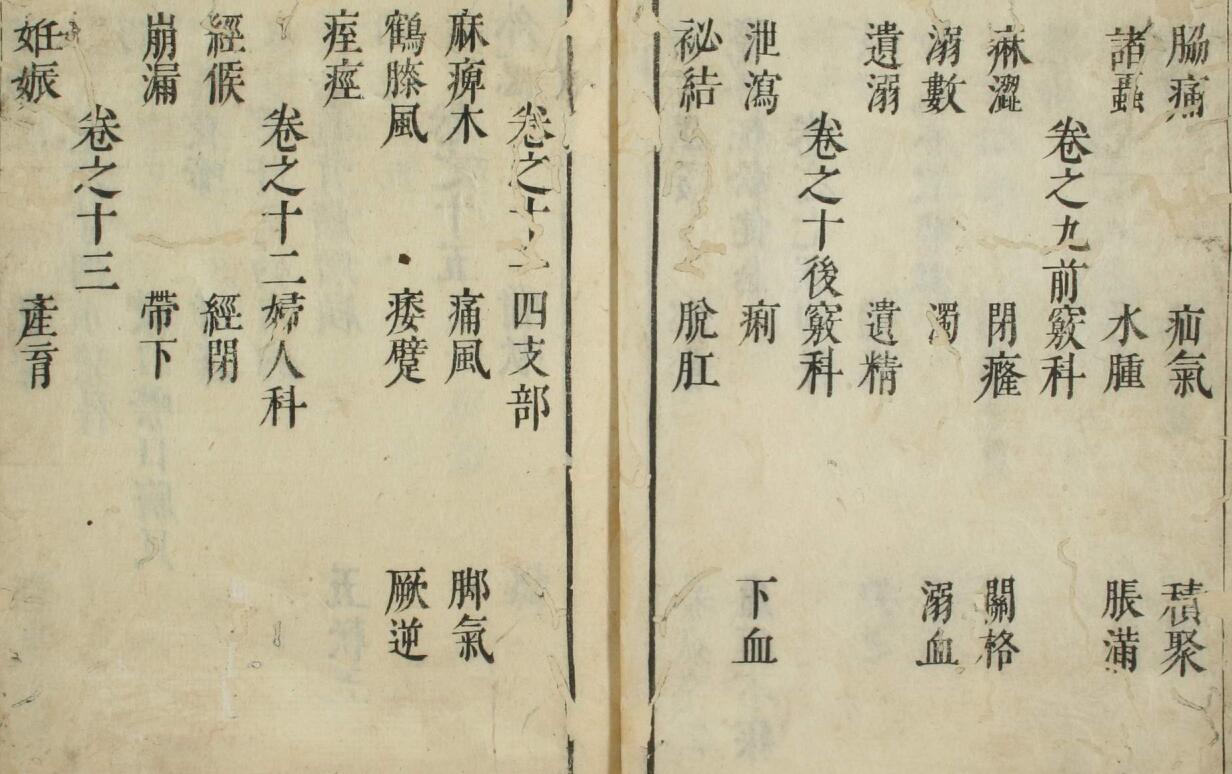 脇痛 疝氣 積聚
諸蟲 水腫 脹滿
卷之九前竅科
痳澀 閉癃 關格
溺數 濁 溺血
遺溺 遺精
卷之十後竅科
泄瀉 痢 下血
祕結 脫肛
卷之十一四支部
麻痺木 痛風 脚氣
鶴膝風 痿躄 厥逆
痓痙
卷之十二婦人科
經候 經閉
崩漏 帶下
卷之十三
妊娠 產育